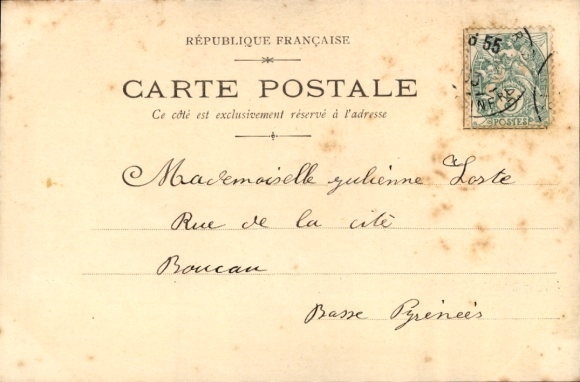 RÉPUBLIQUE FRANÇAISE
CARTE POSTALE
Ce côté est exclusivement réservé à l'adresse
8 55
POSTES
Mademoiselle Julienne Loste
Rue de la cité
Boucau
Basse Pyrénées